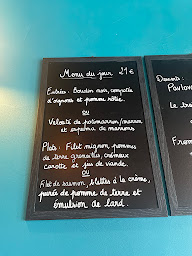 Menu du jour 21€
Entrées : Boudin noir, compotée
d'oignons et pomme rôtie.
ou
Velouté de potimarron/marron
et espuma de marrons
Plats : Filet mignon, pommes
de terre grenailles, crémeux
carotte et jus de viande.
ou
Filet de saumon, blettes à la crème,
purée de pomme de terre et
émulsion de lard.
Dessert :
Pavlova
Le tra
From